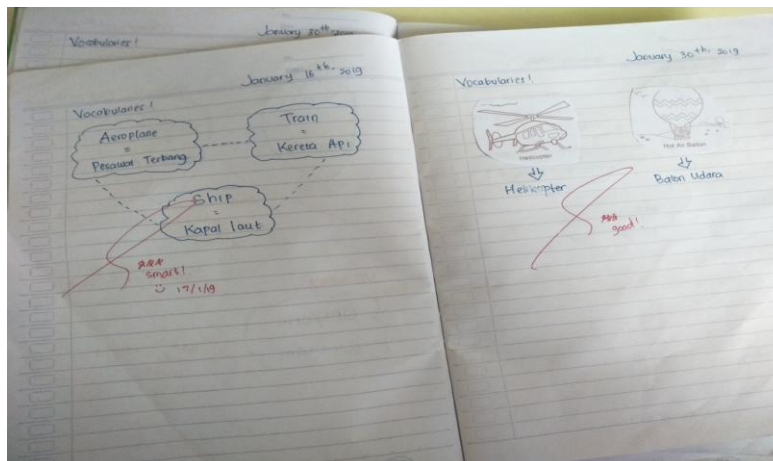 January 30th, 2019
Vocabularies!
January 16th, 2019
Vocabularies!
Aeroplane
=
Pesawat Terbang
Train
=
Kereta Api
Ship
=
Kapal laut
smart!
17/1/19
January 30th, 2019
Vocabularies!
Helicopter
Hot Air Balloon
Helicopter
Balon Udara
good!